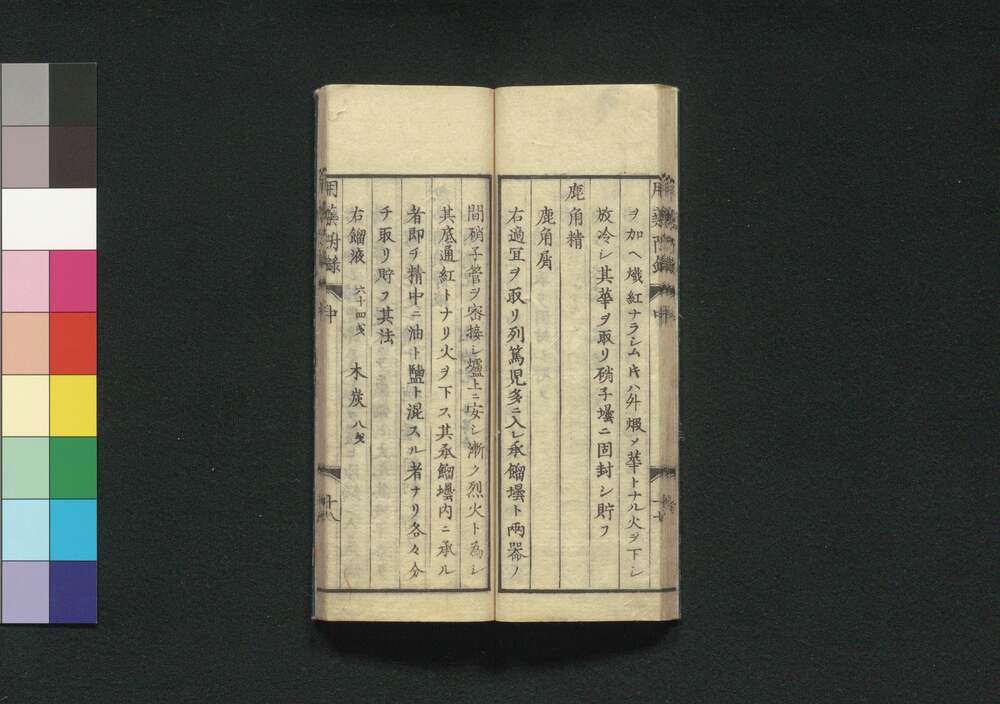 ヲ加ヘ熾紅ナラシム片ハ外煆〆華トナル火ヲ下シ
放冷シ其華ヲ取リ硝子壜ニ固封シ貯フ
鹿角精
鹿角屑
右適宜ヲ取リ列篤児多ニ入レ承餾壜ト両器ノ
間硝子管ヲ密接シ爐上ニ安シ漸ク烈火ト為シ
其底通紅トナリ火ヲ下ス其承餾壜内ニ承ル
者即チ精中ニ油ト鹽ト混スル者ナリ各々分
チ取リ貯フ其法
右餾液 六十四戔 木炭 八戔
用藥附録 中 十八